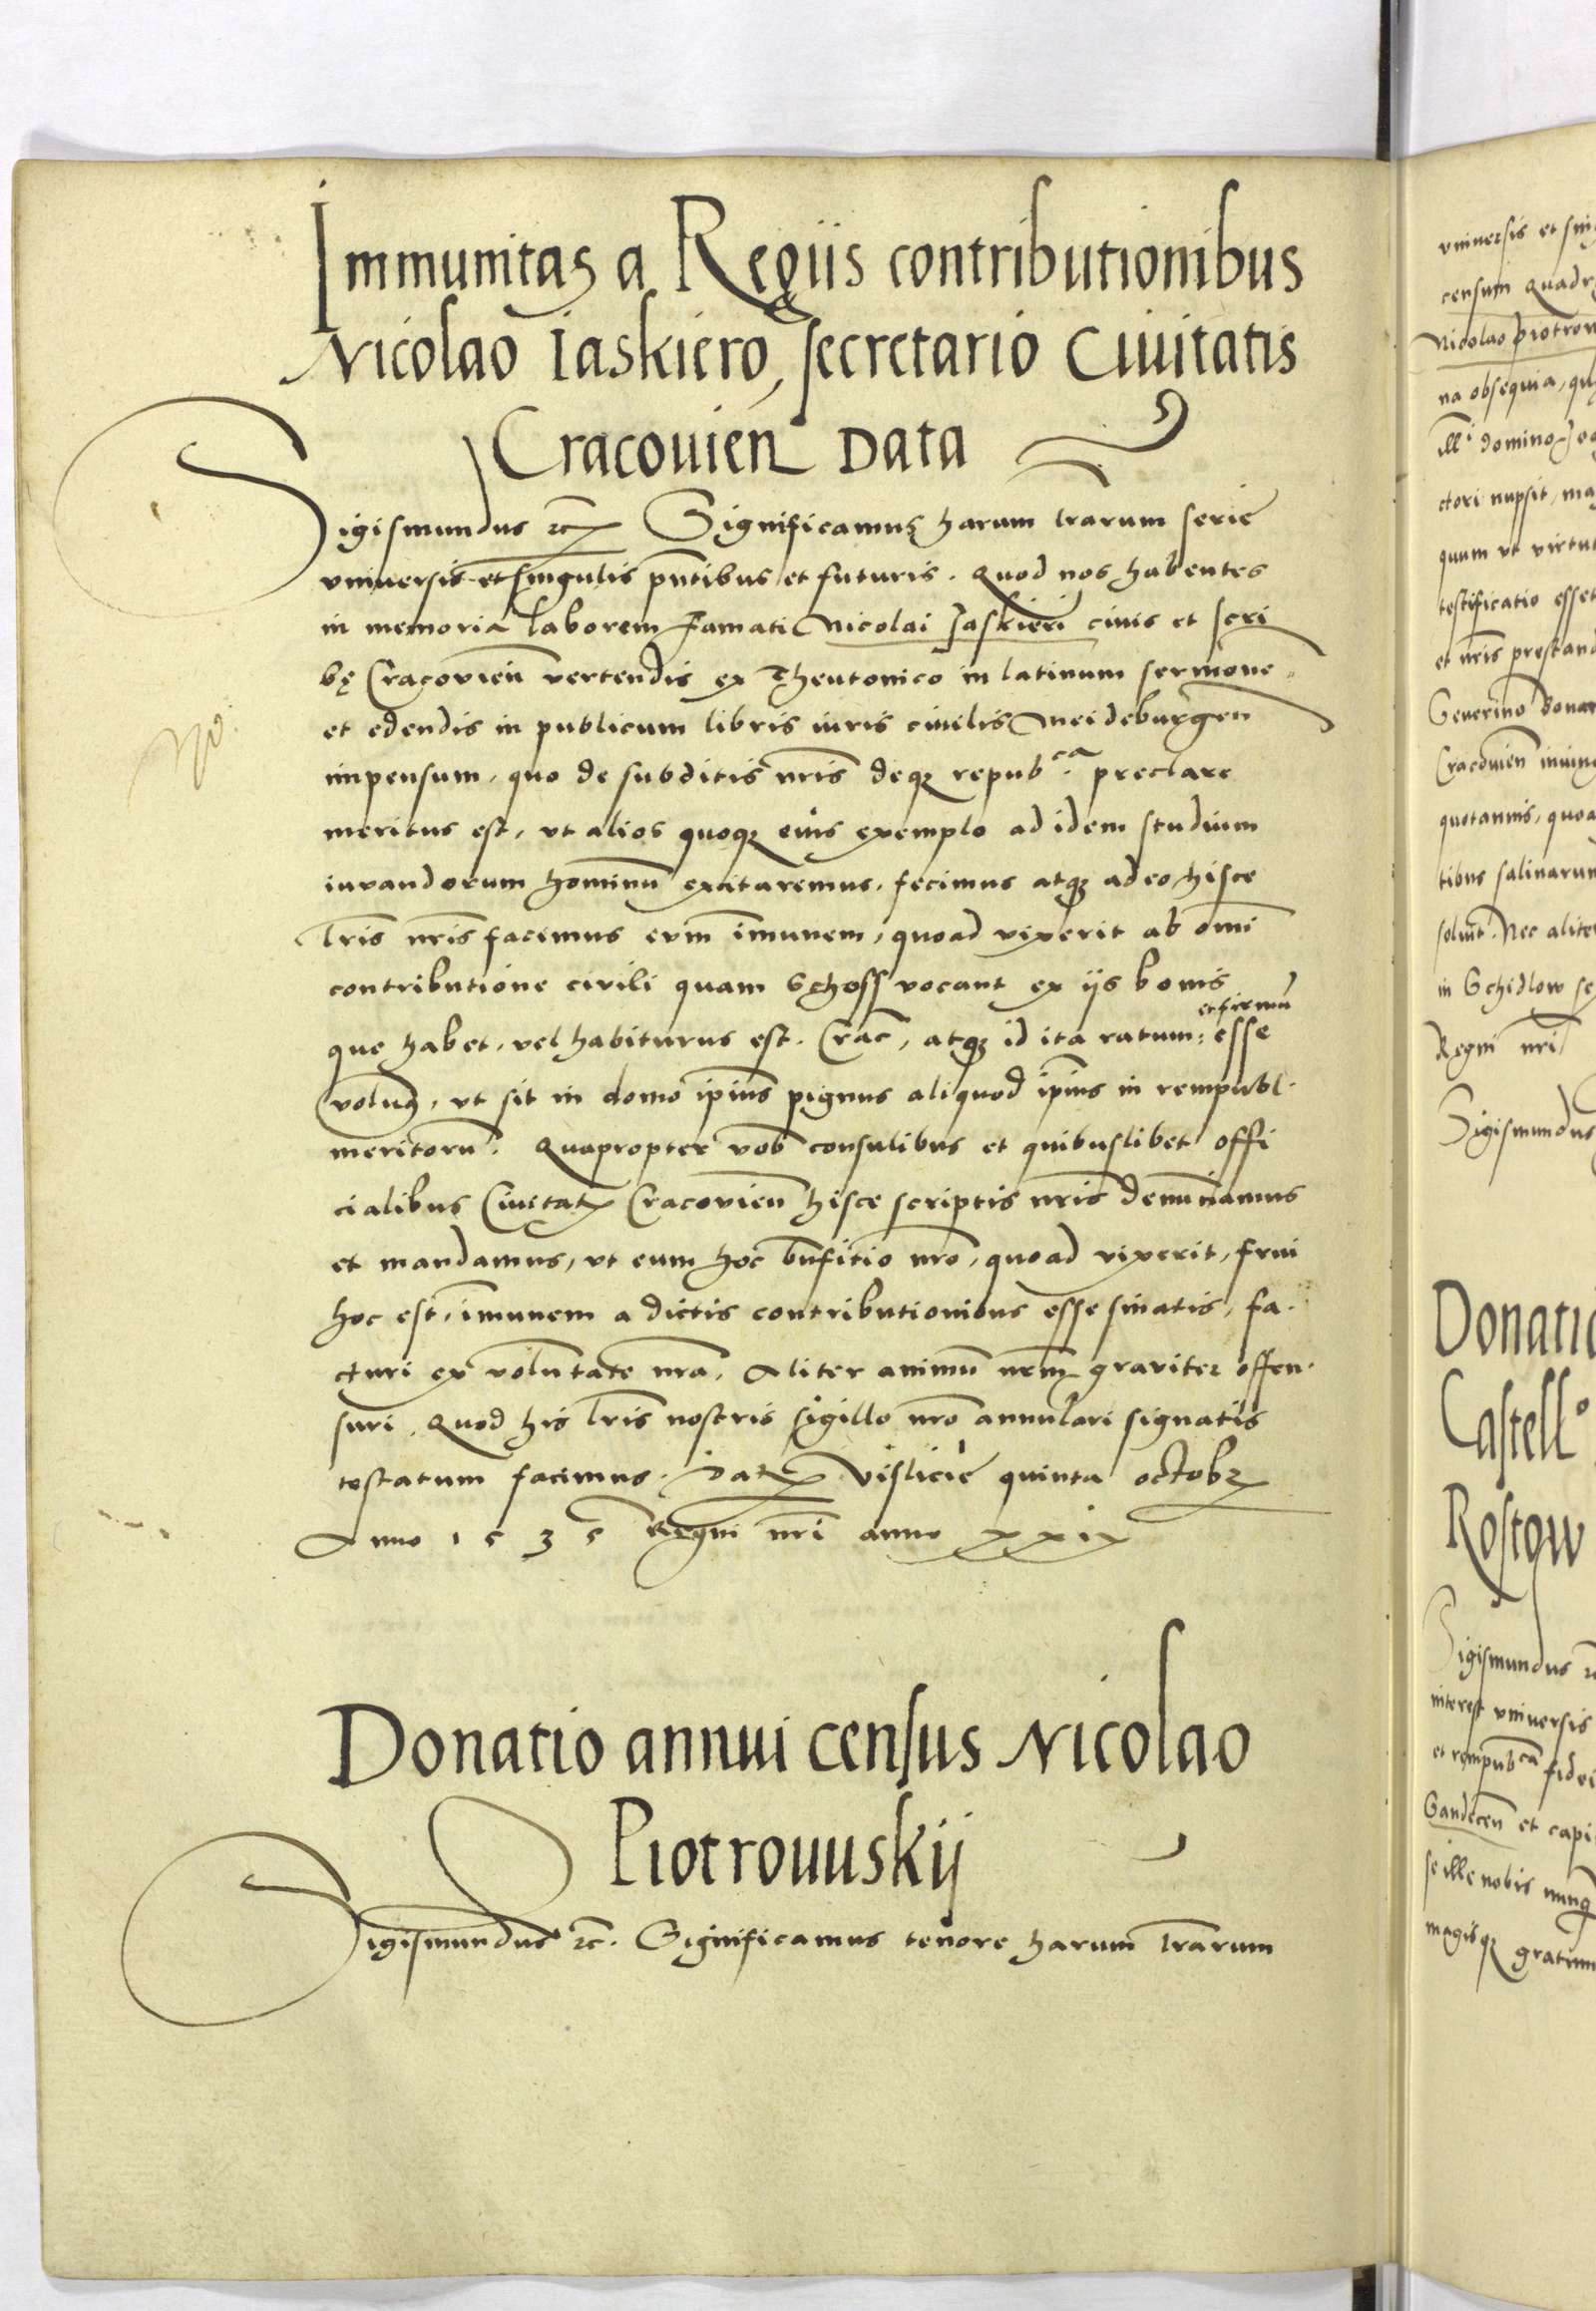 Immunitas a Regiis contributionibus
Nicolao Iaskiero, secretario Ciuitatis
Cracouien̄ Data
Sigismundus rc̄ Significamus harum lr̄arum serie
vniuersis et singulis pn̄tibus et futuris. Quod nos habentes
in memoria laborem famati Nicolai Jaskieri ciuis et scri
bę Cracovien̄ vertendis ex Theutonico in latinum sermone
et edendis in publicum libris iuris ciuilis Meideburgen
impensum, quo de subditis nr̄is deqȝ repub.ca preclare
meritus est, vt alios quoqȝ eius exemplo ad idem studium
iuvandorum hominū excitaremus, fecimus atqȝ adeo hisce
lr̄is nr̄is facimus eum īmunem, quoad vixerit ab om̄i
contributione civili quam Schoss vocant ex ijs bonis
et firmū
que habet, vel habiturus est. Crac̄, atqȝ id ita ratum: esse
volumꝰ, vt sit in domo ip̄ius pignus aliquod ip̄ius in rempubl.
meritorū. Quapropter vob̄ consulibus et quibuslibet offi
cialibus Ciuitatꝭ Cracovien̄ hisce scriptis nr̄is denūnciamus
et mandamus, vt eum hoc bn̄fitio nr̄o, quoad vixerit, frui
hoc est, īmunem a dictis contributionibus esse sinatis, fa.
cturi ex voluntate nr̄a, Aliter animū nr̄m graviter offen.
suri. Quod his lr̄is nostris sigillo nr̄o annulari signatis
testatum facimus. Datꝭ Vislicie quinta octobꝝ
Anno 1535 Regni nr̄i anno xxix
No.
Donatio annui census Nicolao
Piotrouuskij
Sigismundus rc̄. Significamus tenore harum lr̄arum
vniuersis et
censum
Nicolao
na obsequia,
ctori nupsit,
quum vt
testificatio esset
et nr̄is
Severino Bonar
Cracovien̄
quotannis,
tibus salinarum
Nec
in Schidlow
Regni nr̄i
Sigismundus
Donatio
Castell.o
Rostow
Sigismundus
interest vniuersis
et rempub.ca
Gandecen̄ et
se ille nobis
magisqȝ